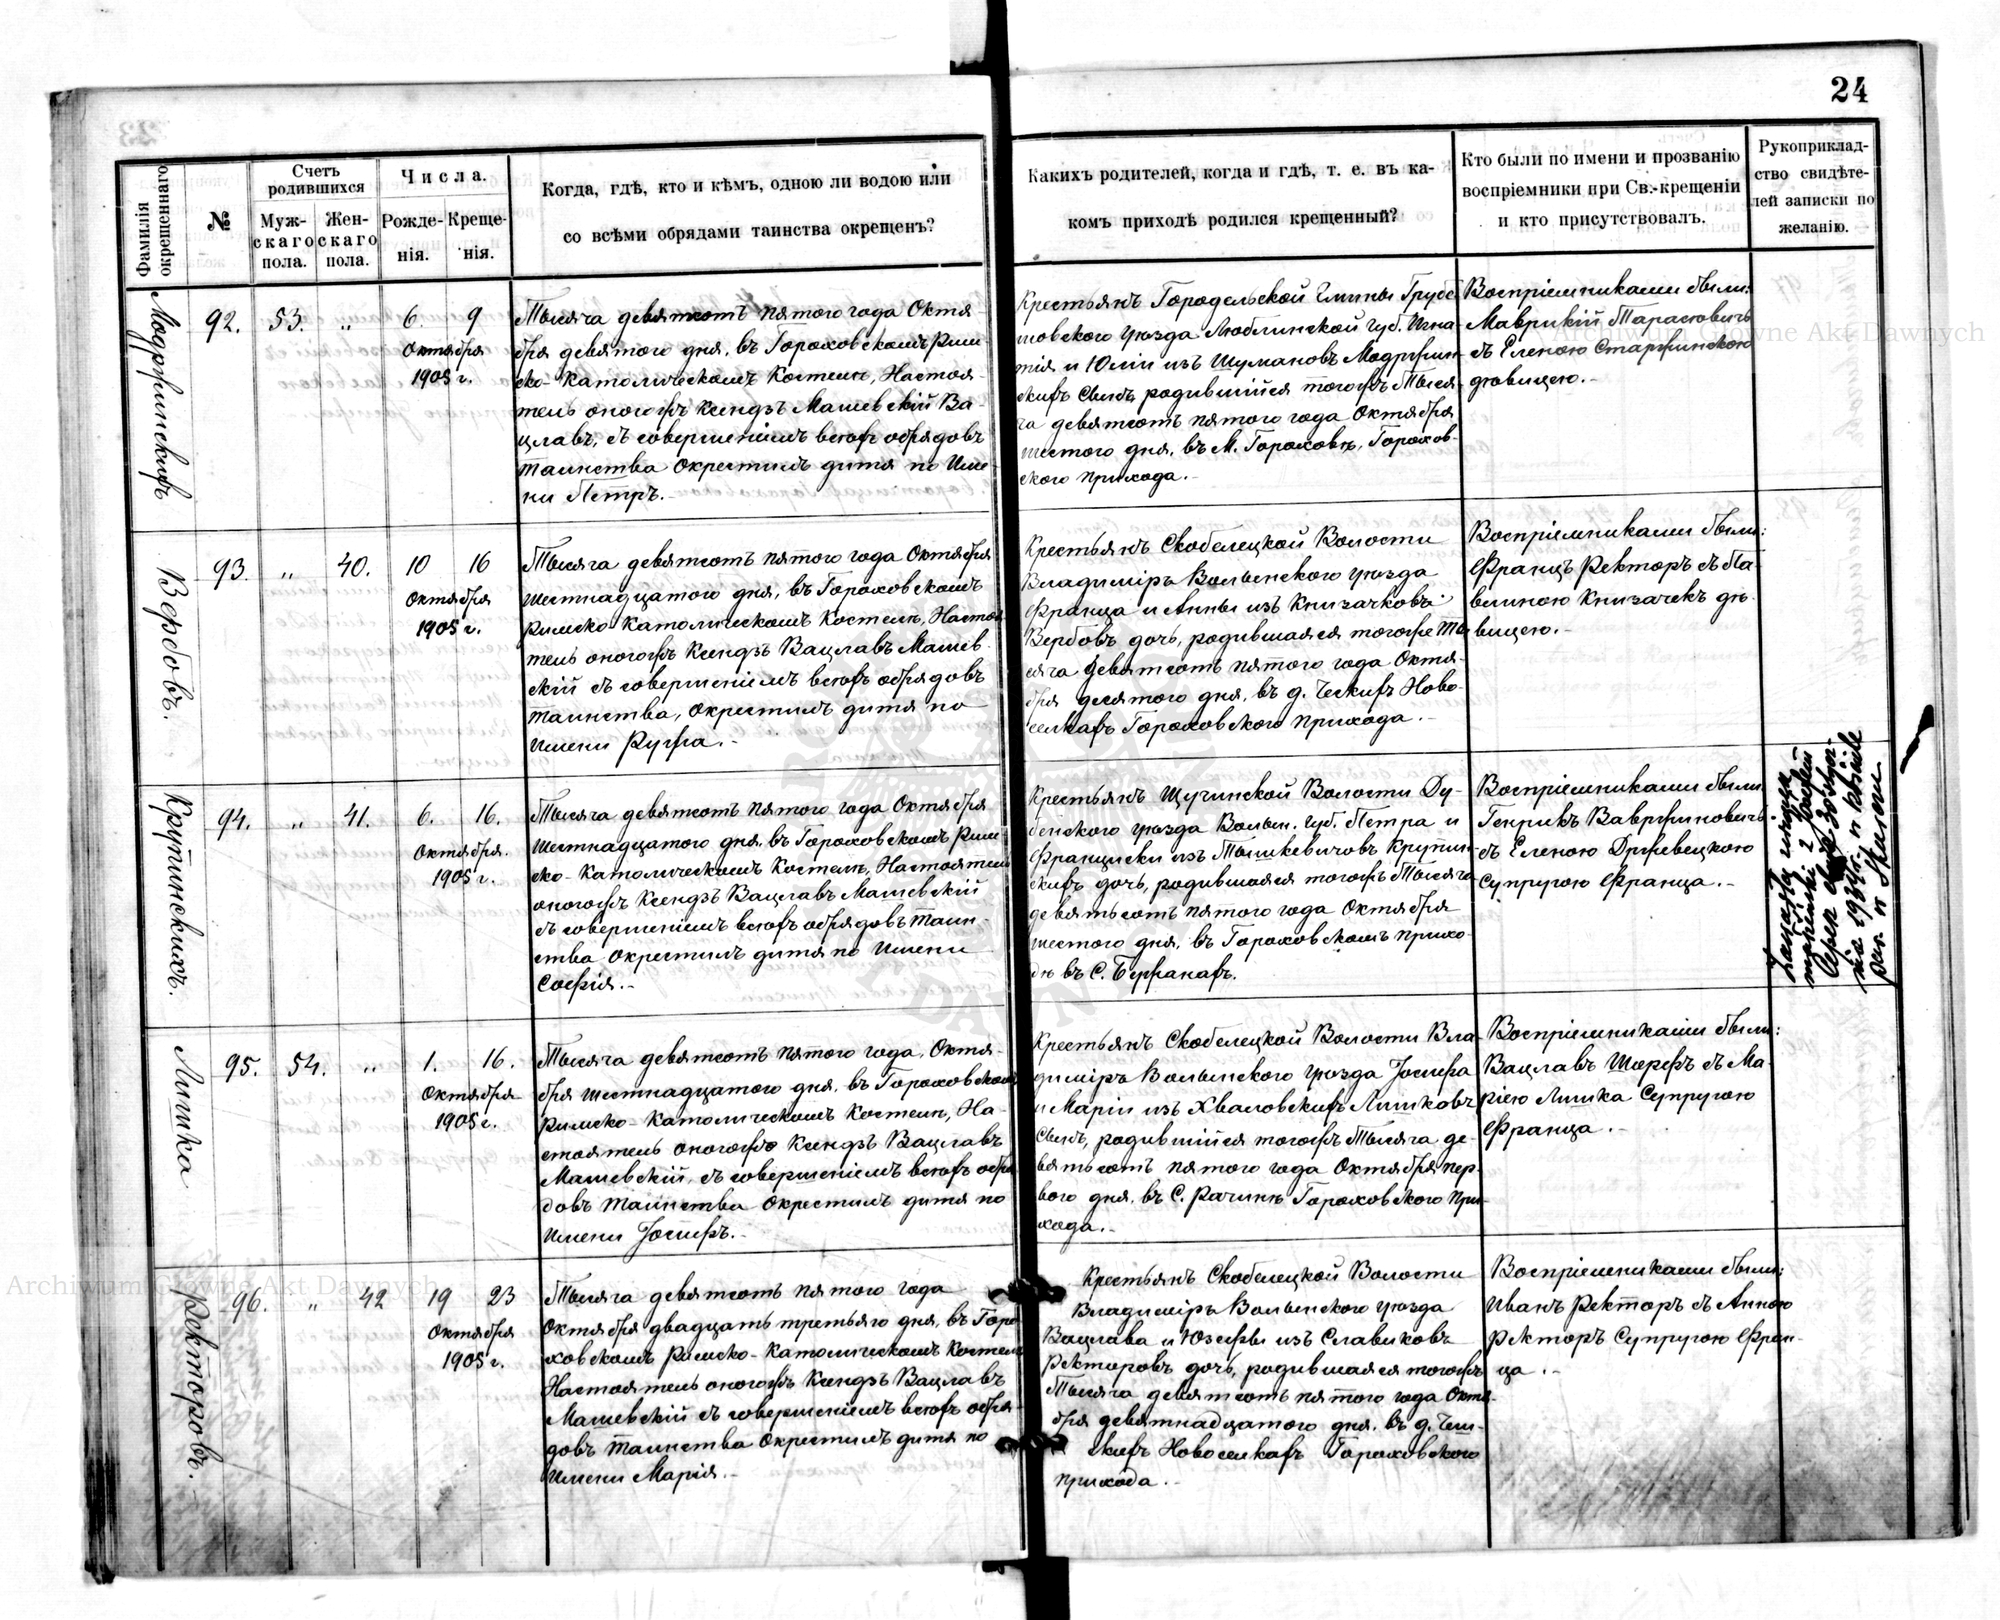 24
Фамилія окрещеннаго
№
Счетъ родившихся
Муж-
скаго
пола.
Жен-
скаго
пола.
Числа.
Рожде-
нія.
Креще-
нія.
Когда, гдѣ, кто и кѣмъ, одною ли водою или
со всѣми обрядами таинства окрещенъ?
Какихъ родителей, когда и гдѣ, т. е. въ ка-
комъ приходѣ родился крещенный?
Кто были по имени и прозванію
воспріемники при Св.-крещеніи
и кто присутствовалъ.
Рукоприклад-
ство свидѣте-
лей записки по
желанію.
92. 53. „ 6. 9
Октября
1905 г.
Тысяча девятьсотъ пятого года Октя-
бря девятого дня, въ Гороховскомъ Рим
ско-Католическомъ Костелѣ, Настоя-
тель оногожъ Ксендзъ Машевскій Ва-
цлавъ, съ совершеніемъ всѣхъ обрядовъ
таинства окрестилъ дитя по Име-
ни Петръ.-
Крестьянъ Городельской Гмины Грубе-
шовского уѣзда Люблинской губ. Игна-
тія и Юліи изъ Шумановъ Модржин-
скихъ Сынъ, родившійся тогожъ Тыся-
ча девятьсотъ пятого года Октября
шестого дня, въ М. Гороховѣ, Горохов-
ского прихода.-
Воспріемниками были:
Маврикій Тарасовичъ
съ Еленою Старжинскою
дѣвицею.-
Вербовъ.
93. „ 40. 10 16
Октября
1905 г.
Тысяча девятьсотъ пятого года Октября
шестнадцатого дня, въ Гороховскомъ
Римско-Католическомъ Костелѣ, Настоя
тель оногожъ Ксендзъ Вацлавъ Машев-
скій съ совершеніемъ всѣхъ обрядовъ
таинства, окрестилъ дитя по
имени Ружа.-
Крестьянъ Скобелецкой Волости
Владиміръ Волынского уѣзда
Франца и Анны изъ Книзачковъ
Вербовъ дочь, родившаяся тогоже Ты
сяча девятьсотъ пятого года Октя-
бря десятого дня, въ д. Ческихъ Ново-
селкахъ Гороховского прихода.-
Воспріемниками были:
Францъ Ректоръ съ Па-
влиною Книзачекъ дѣ-
вицею.-
Крупинскихъ.
94. „ 41. 6. 16.
Октября.
1905 г.
Тысяча девятьсотъ пятого года Октября
шестнадцатого дня, въ Гороховскомъ Рим
ско-Католическомъ Костелѣ, Настоятель
оногожъ Ксендзъ Вацлавъ Машевскій
съ совершеніемъ всѣхъ обрядовъ таин-
ства окрестилъ дитя по имени
Софія.-
Крестьянъ Щучинской Волости Ду-
бенского уѣзда Волын. губ. Петра и
Франциски изъ Тышкевичовъ Крупин-
скихъ дочь, родившаяся тогожъ Тысяча
девятьсотъ пятого года Октября
шестого дня, въ Гороховскомъ прихо-
дѣ въ С. Бужанахъ.
Воспріемниками были
Генрикъ Вавржиновичъ
съ Еленою Држевецкою
Супругою Франца.-
Лишка
95. 54. „ 1. 16.
Октября
1905 г.
Тысяча девятьсотъ пятого года, Октя-
бря шестнадцатого дня, въ Гороховскомъ
Римско-Католическомъ Костелѣ, На-
стоятель оногожъ Ксендзъ Вацлавъ
Машевскій, съ совершеніемъ всѣхъ обря
довъ таинства окрестилъ дитя по
имени Іосифъ.-
Крестьянъ Скобелецкой Волости Вла
диміръ Волынского уѣзда Іосифа
и Маріи изъ Хваловскихъ Лишковъ
Сынъ, родившійся тогожъ Тысяча де-
вятьсотъ пятого года Октября пер-
вого дня, въ С. Рачинѣ Гороховского при
хода.-
Воспріемниками были:
Вацлавъ съ Ма-
ріею Лишка Супругою
Франца.-
Ректоровъ.
96. „ 42 19 23
Октября
1905 г.
Тысяча девятьсотъ пятого года
Октября двадцать третьяго дня, въ Горо
ховскомъ Римско-Католическомъ Костелѣ
Настоятель оногожъ Ксендзъ Вацлавъ
Машевскій съ совершеніемъ всѣхъ обря-
довъ таинства окрестилъ дитя по
имени Марія.-
Крестьянъ Скобелецкой Волости
Владиміръ Волынского уѣзда
Вацлава и Юзефы изъ Славиковъ
Ректоровъ дочь, родившаяся тогожъ
Тысяча девятьсотъ пятого года Октя-
бря девятнадцатого дня, въ д. Чеш-
скихъ Новоселкахъ Гороховского
прихода.-
Воспріемниками были:
Иванъ Ректоръ съ Анною
Ректоръ Супругою Фран-
ца.-
Archiwum Główne Akt Dawnych
Archiwum Główne Akt Dawnych